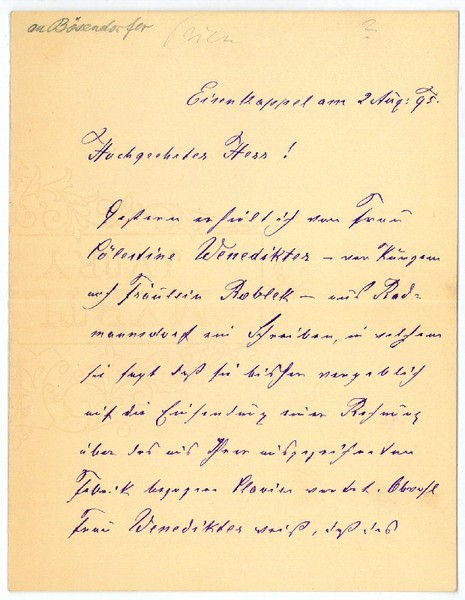 an Bösendorfer
Eisenkappel am 2 Aug: 95.
Hochgeehrter Herr!
Gestern erhielt ich von Frau
Cölestine Venedikter – vor Kurzem
noch Fräulein Roblek – aus Rad-
mannsdorf ein Schreiben, in welchem
sie sagt daß sie bisher vergeblich
auf die Einsendung einer Rechnung
über das aus Ihrer ausgezeichneten
Fabrik bezogene Clavier wartet. Obwohl
Frau Venedikter weiß, daß das